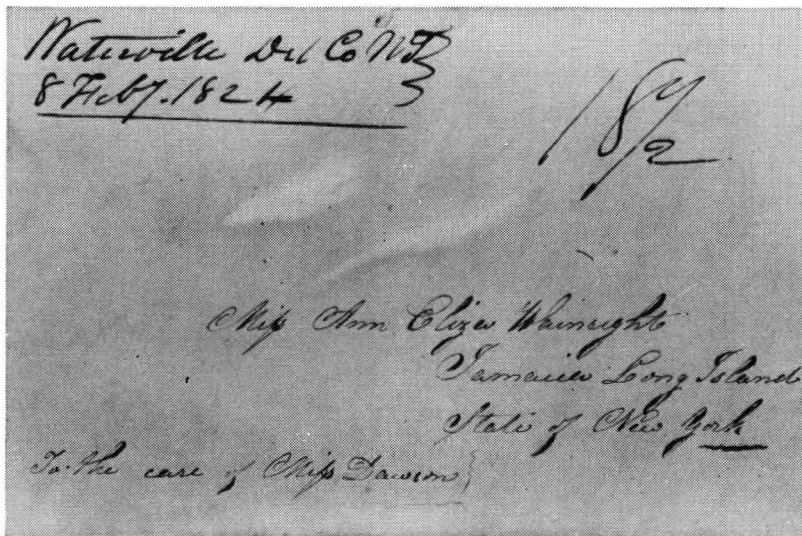 Waterville Del Co NY
8 Feby. 1824
18 1/2
Miss Ann Eliza Wainright
Jamaica Long Island
State of New York
To the care of Miss Dawson